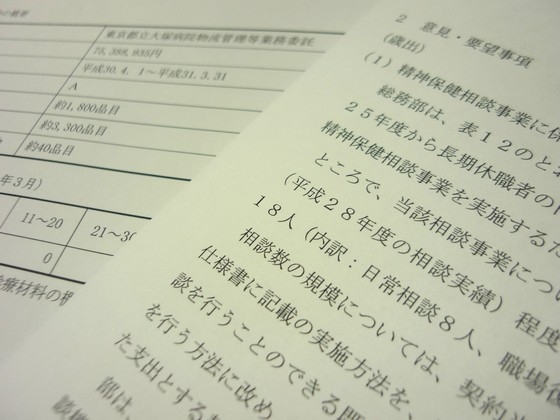 の概要
東京都立大塚病院物流管理等業務委託
75,388,935円
平成30.4. 1～平成31.3.31
A
約1,800品目
約3,300品目
約40品目
年3月）
11～20
21～30
0
療材料の
2 意見・要望事項
（歳出）
（1）精神保健相談事業に係
総務部は、表12のとお
25年度から長期休職者の
精神保健相談事業を実施するた
ところで、当該相談事業につい
（平成28年度の相談実績）程度
18人（内訳：日常相談8人、職場復
相談数の規模については、契約
仕様書に記載の実施方法を、
談を行うことのできる
を行う方法に改め
た支出とする
部は、